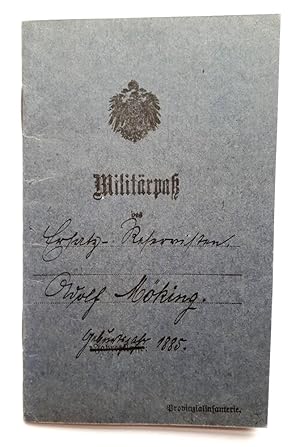 Militärpaß
des
Ersatz-Reservisten
Adolf Möking.
Geburtsjahr 1885.
Provinzialinfanterie.